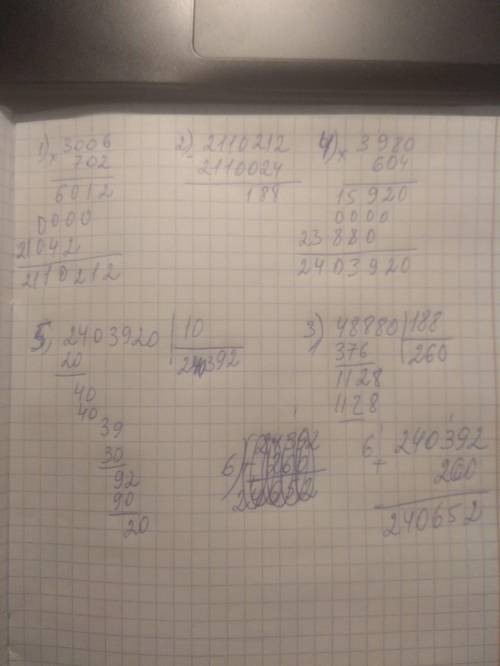 1) × 3006
702
6012
0000
21042
2110212
2) - 2110212
2110024
188
4) × 3980
604
15920
0000
23880
2403920
5) 2403920 | 10
20 240392
40
40
39
30
92
90
20
3) 48880 | 188
376 260
1128
1128
6)
6 + 240392
260
240652